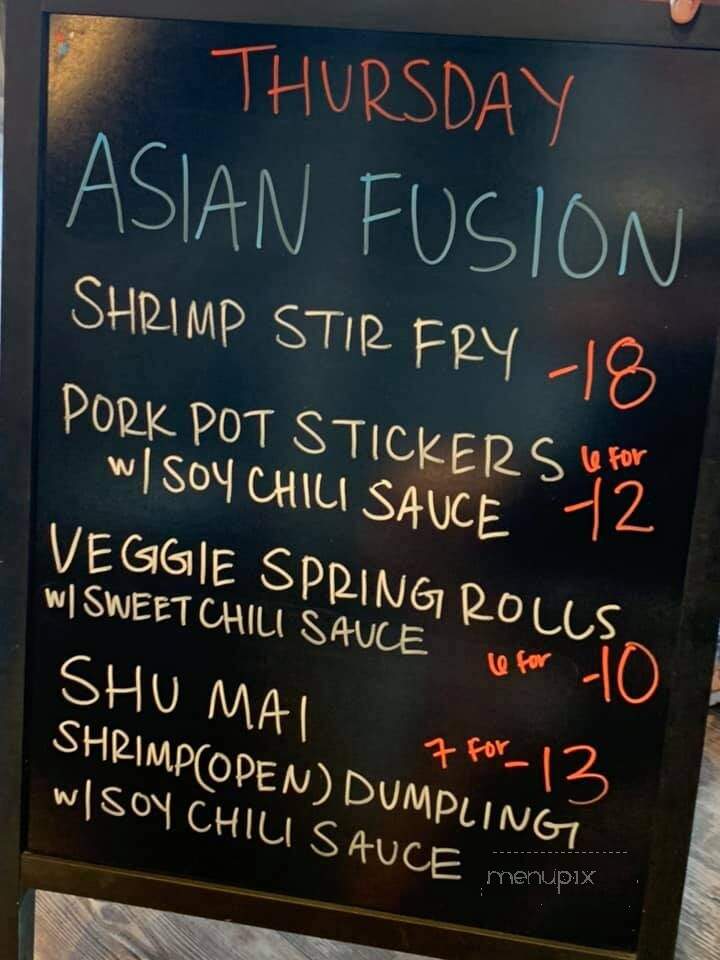 THURSDAY
ASIAN FUSION
SHRIMP STIR FRY -18
PORK POT STICKERS 6 FOR
W/ SOY CHILI SAUCE -12
VEGGIE SPRING ROLLS
W/ SWEET CHILI SAUCE
6 for -10
SHU MAI
7 FOR -13
SHRIMP(OPEN) DUMPLING
W/ SOY CHILI SAUCE
menupix